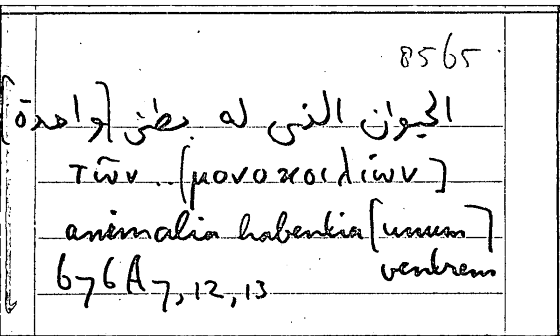 8565
الحيوان الذى له بطن [واحدة]
τῶν .. [μονοκοιλίων]
animalia habentia [unum]
ventrem
676A7, 12, 13